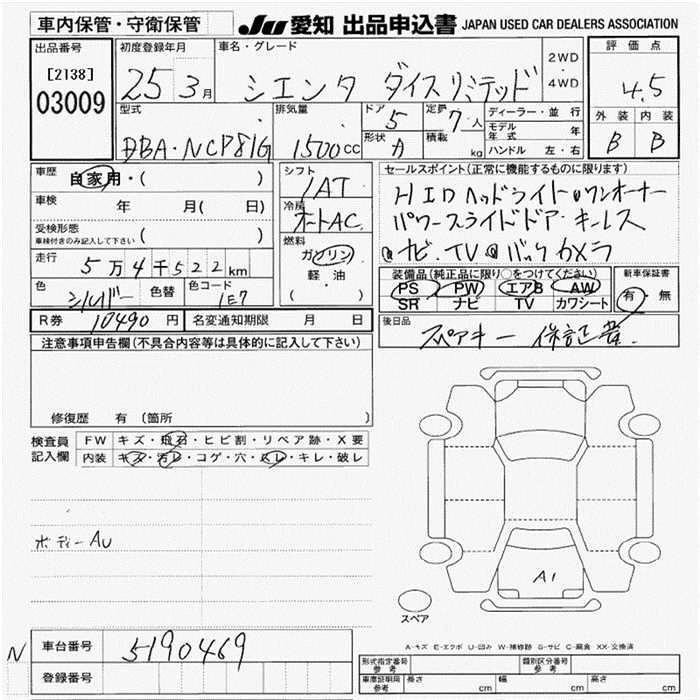 車内保管・守衛保管
JU 愛知 出品申込書 JAPAN USED CAR DEALERS ASSOCIATION
出品番号
[2138]
03009
初度登録年月
25 3月
車名・グレード
シエンタ ダイスリミテッド
2WD
・
4WD
評価点
4.5
外装 内装
B B
型式
DBA・NCP81G
排気量
1500cc
ドア
5
形状
A
定員
7人
積載
kg
ディーラー・並行
モデル年式 年
ハンドル 左・右
車歴 自家用・( )
車検 年 月( 日)
受検形態
車検付きのみ記入して下さい ( )
走行 5万4千522km
色 シルバー 色替 色コード 1E7
シフト
IAT
冷房
オートAC
燃料
ガソリン
軽油
( ・ )
セールスポイント(正常に機能するものに限ります)
HIDヘッドライト ワンオーナー
パワースライドドア キーレス
ナビ.TV バックカメラ
装備品(純正品に限り○をつけてください)
PS PW エアB AW
SR ナビ TV カワシート
新車保証書
有・無
後日品
スペアキー 保証書
R券 10490円 名変通知期限 月 日
注意事項申告欄(不具合内容等は具体的に記入して下さい)
修復歴 有 (箇所 )
検査員記入欄
FW キズ・飛石・ヒビ割・リペア跡・X要
内装 キズ・汚レ・コゲ・穴・スレ・キレ・破レ
ボディーAU
A1
スペア
A-キズ E-エクボ U-凹み W-補修跡 S-サビ C-腐食 XX-交換済
N
車台番号 5190469
登録番号
形式指定番号 参考
類別区分番号 参考
車庫証明用 参考 長さ cm 幅 cm 高さ cm